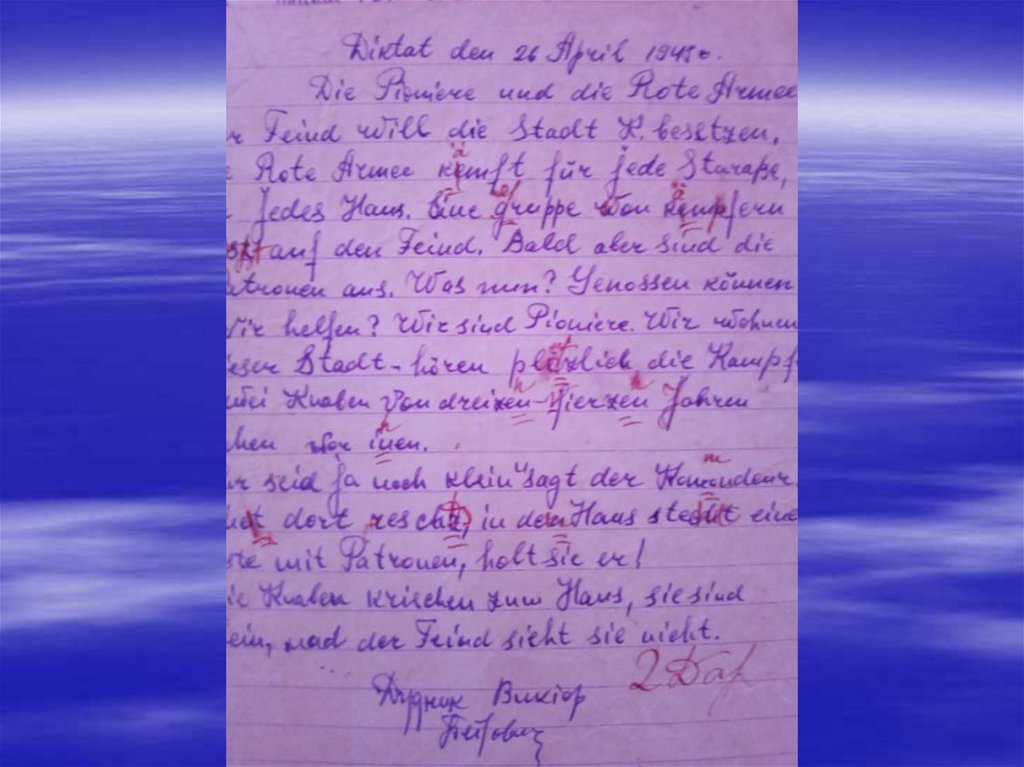 Diktat den 26 April 1945 г.
Die Pioniere und die Rote Armee
r Feind will die Stadt K. besetzen.
e Rote Armee kempft für jede Starаße,
r jedes Haus. Eine gruppe von kempfern
auf den Feind. Bald aber sind die
atronen aus. Was nun? Genossen können
Wir helfen? Wir sind Pioniere. Wir wohnen
ieser Stadt - hören plözlich die Kampf
wei Knaben von dreizen - vierzen Jahren
ehen vor inen.
r seid ja noch klein" sagt der Komandeur
dort in den Haus steht eine
ste mit Patronen, holt sie er!
ie Knaben krischen zum Haus, sie sind
ein, und der Feind sieht sie nicht.
2
Дудник Виктор